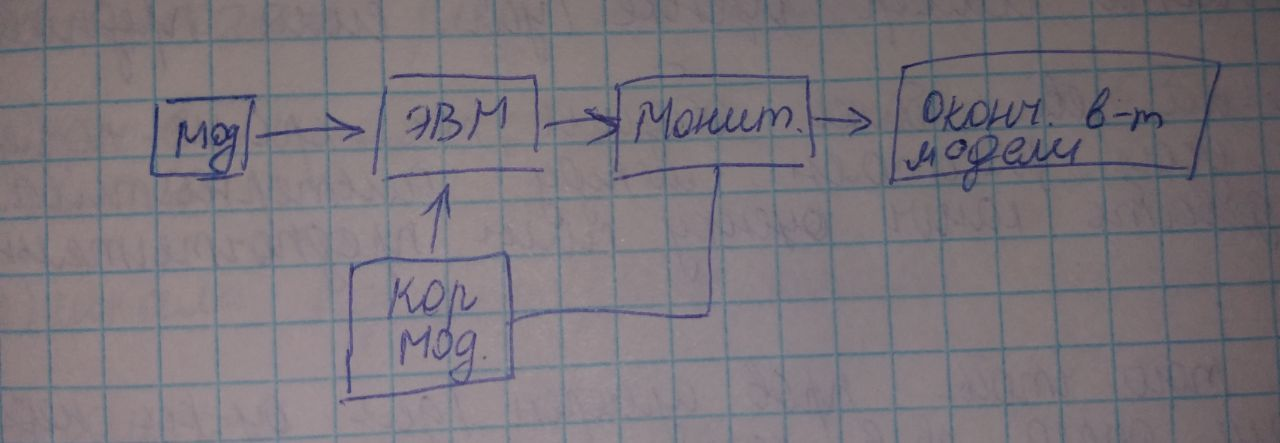 мод
ЭВМ
Монит.
Оконч. в-т
модели
Кор
мод.